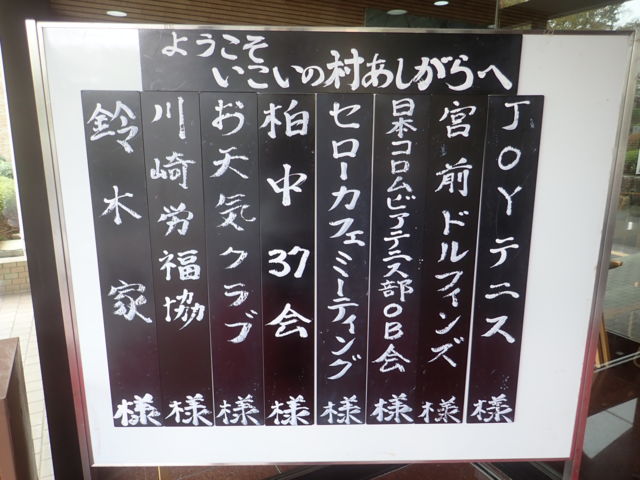 ようこそ
いこいの村あしがらへ
JOYテニス様
宮前ドルフィンズ様
日本コロムビアテニス部OB会様
セローカフェミーティング様
柏中37会様
お天気クラブ様
川崎労福協様
鈴木家様